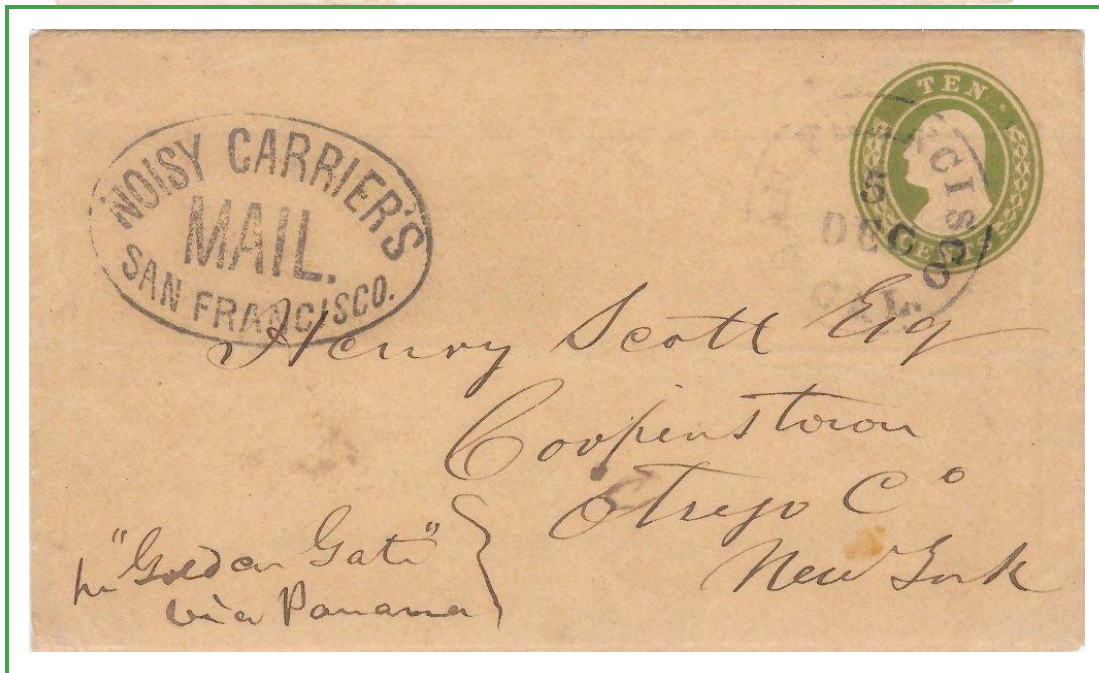 NOISY CARRIER'S
MAIL.
SAN FRANCISCO.
TEN
CENTS
SAN FRANCISCO
5
DEC
CAL.
Henry Scott Esq
Cooperstown
Otsego Co
New York
pr "Golden Gate"
via Panama